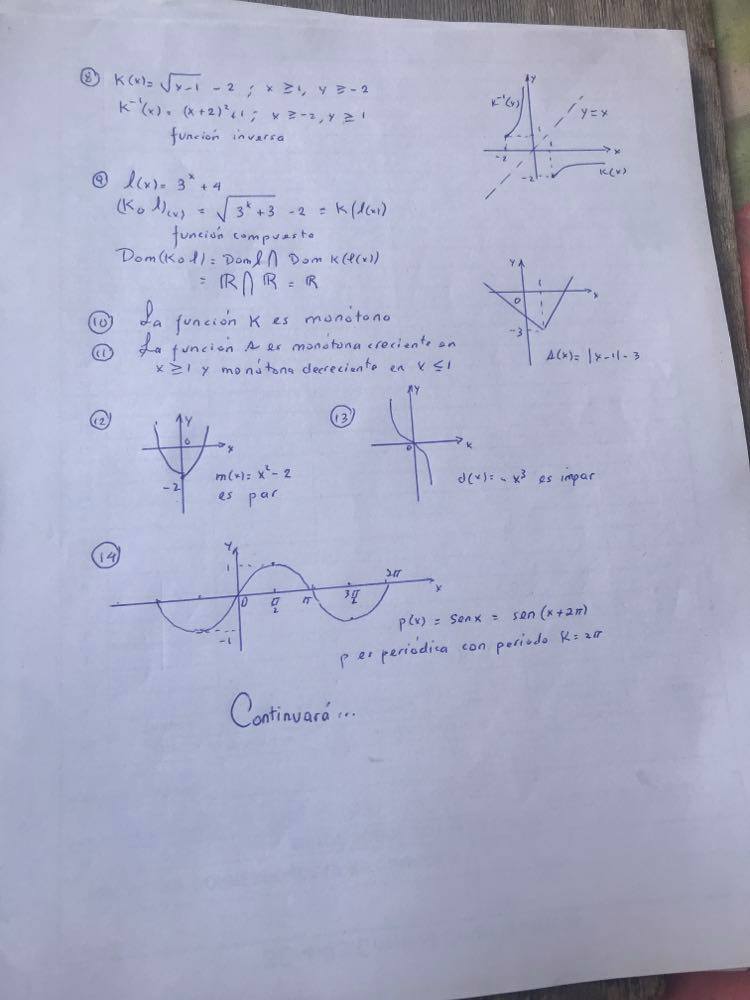 ⑧ K(x)= √x-1 - 2 ; x ≥ 1, y ≥ -2
K⁻¹(x) = (x+2)²+1 ; x ≥ -2, y ≥ 1
función inversa
y
K⁻¹(x)
y = x
1
1
-2
x
-2
K(x)
⑨ l(x) = 3ˣ + 4
(K o l)(x) = √3ˣ+3 - 2 = K(l(x))
función compuesta
Dom(K o l) = Dom l ⋂ Dom K(l(x))
= ℝ ⋂ ℝ = ℝ
y
1
0
x
-3
s(x) = |x-1| - 3
⑩ La función K es monótona
⑪ La función s es monótona creciente en
x ≥ 1 y monótona decreciente en x ≤ 1
⑫
y
0
x
-2
m(x) = x² - 2
es par
⑬
y
0
x
d(x) = -x³ es impar
⑭
y
1
0
π/2
π
3π/2
2π
x
-1
p(x) = sen x = sen (x+2π)
p es periódica con periodo K = 2π
Continuará...